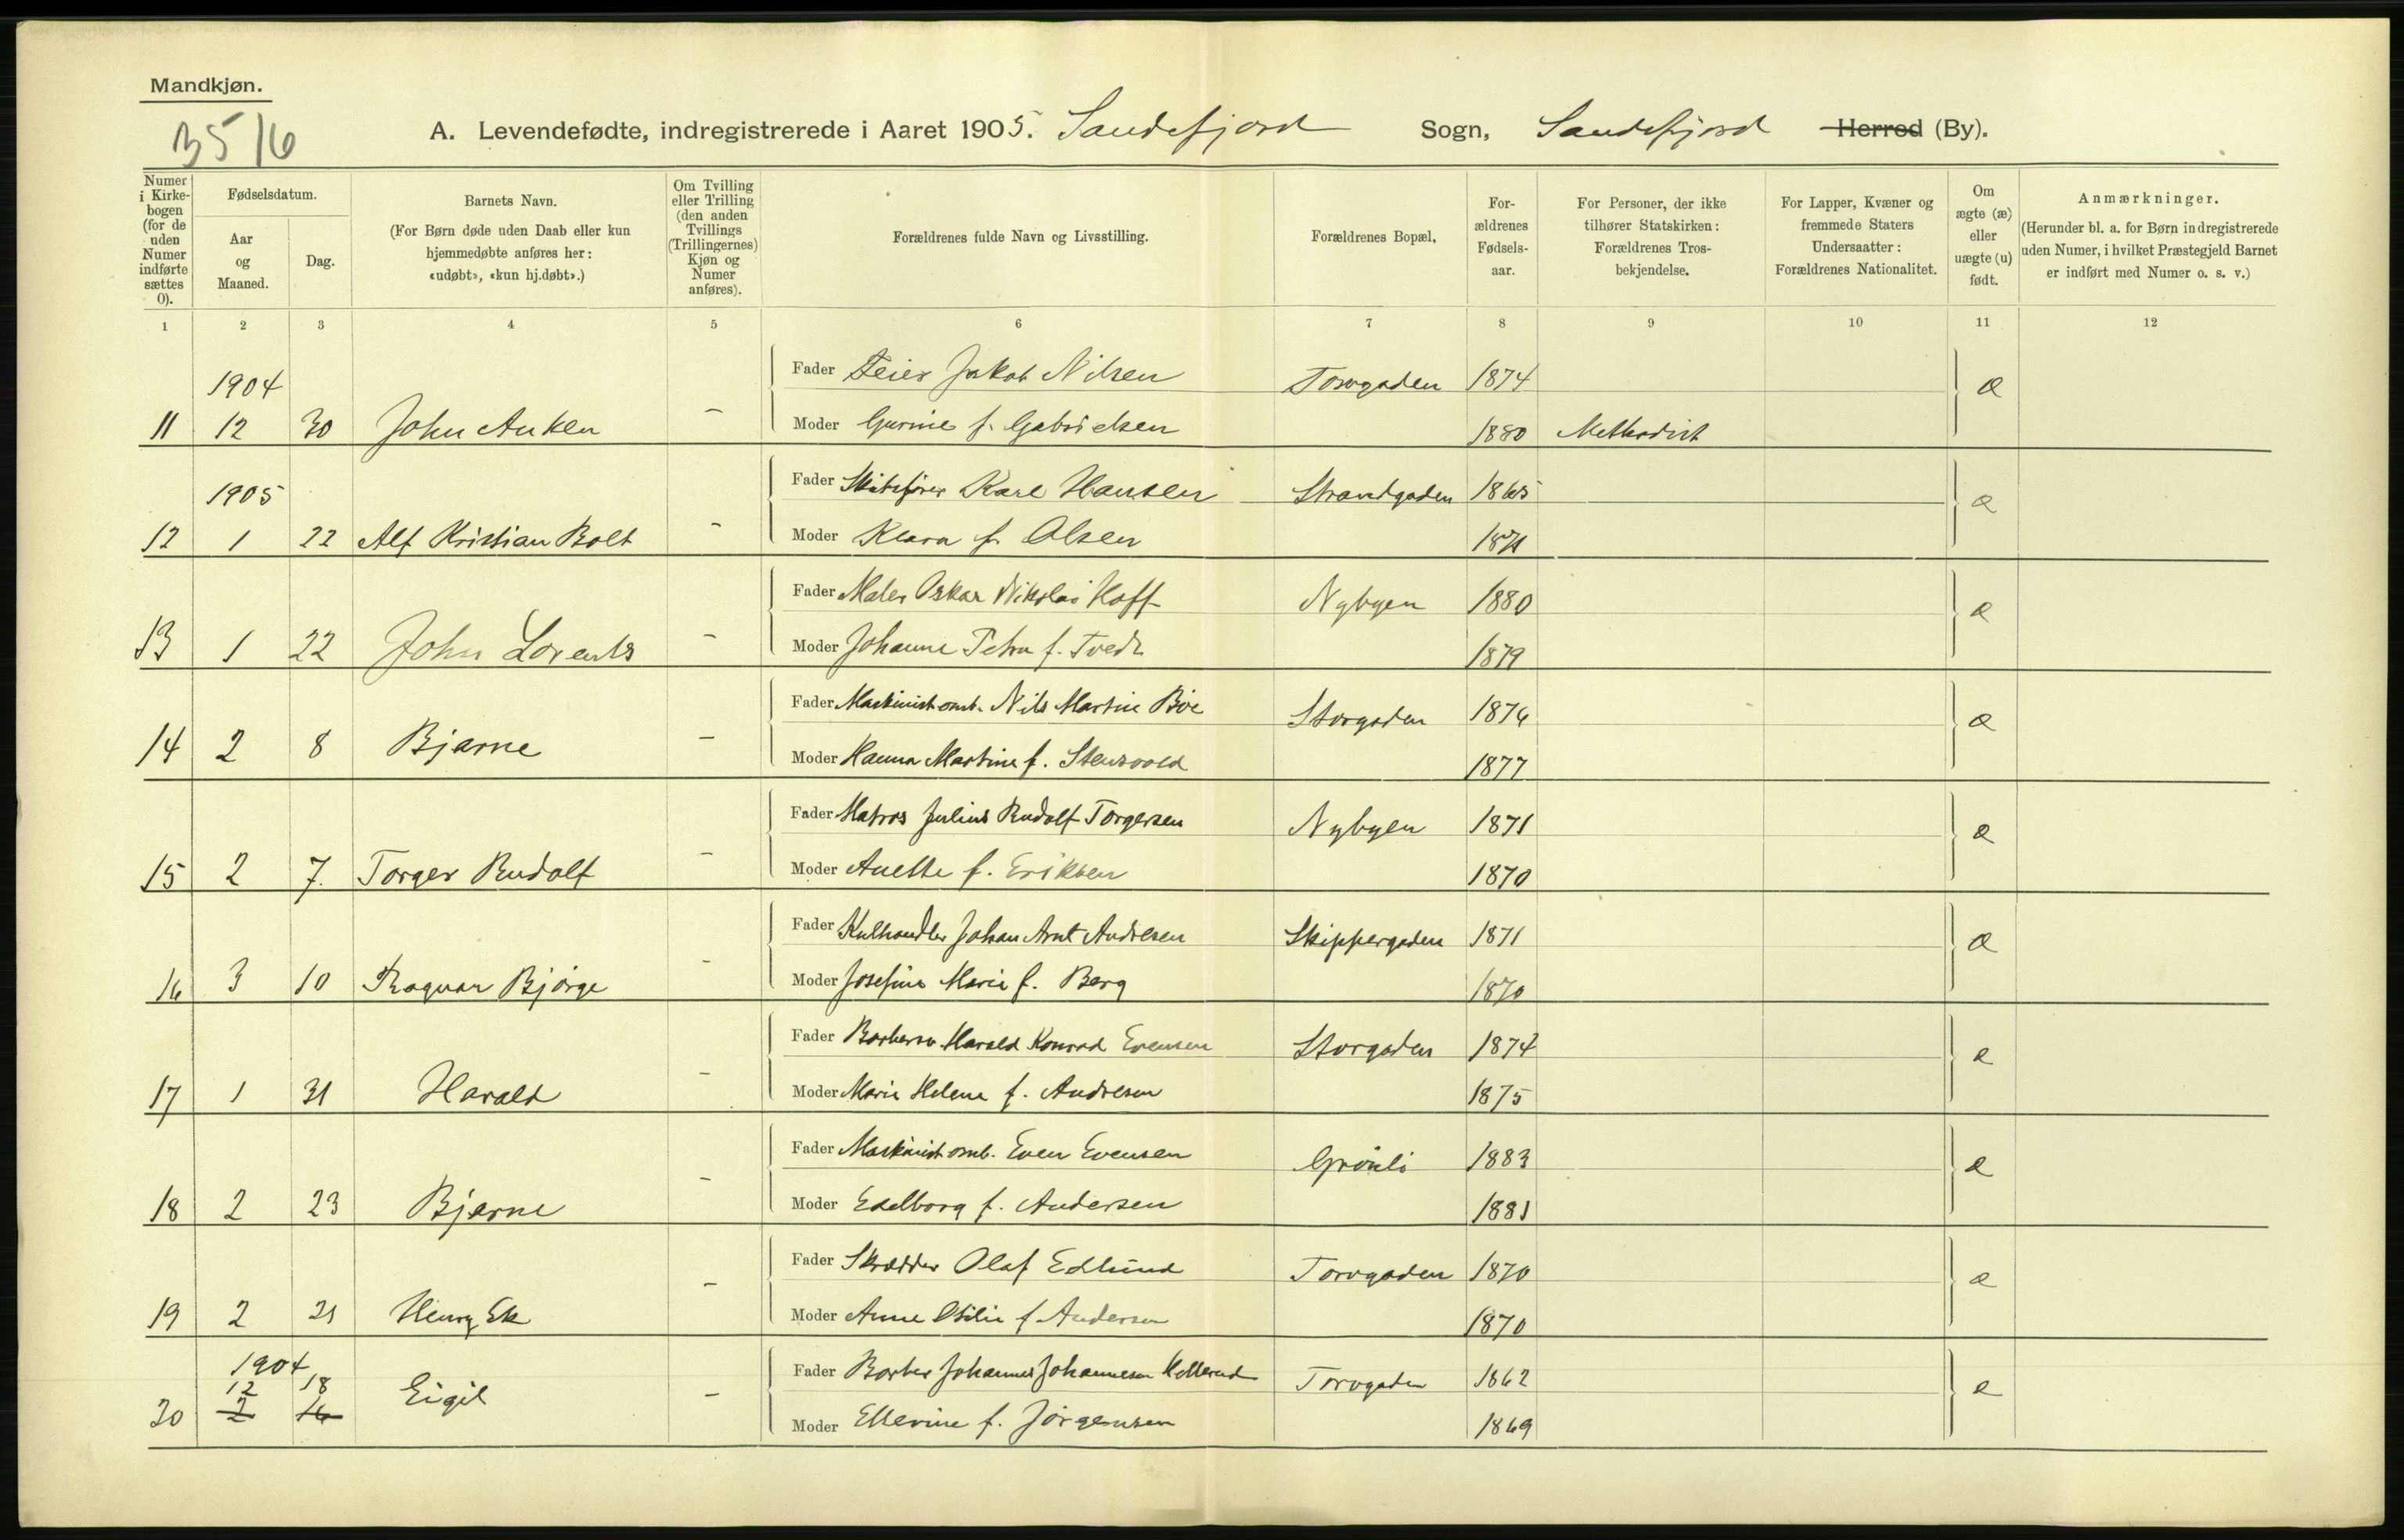 Mandkjøn.
3516
A. Levendefødte, indregistrerede i Aaret 1905. Sandefjord Sogn, Sandefjord Herred (By).
Numer i Kirkebogen (for de uden Numer indførte sættes 0).
Fødselsdatum.
Aar og Maaned.
Dag.
Barnets Navn.
(For Børn døde uden Daab eller kun hjemmedøbte anføres her: «udøbt», «kun hj.døbt».)
Om Tvilling eller Trilling (den anden Tvillings (Trillingernes) Kjøn og Numer anføres).
Forældrenes fulde Navn og Livsstilling.
Forældrenes Bopæl.
Forældrenes Fødselsaar.
For Personer, der ikke tilhører Statskirken: Forældrenes Trosbekjendelse.
For Lapper, Kvæner og fremmede Staters Undersaatter: Forældrenes Nationalitet.
Om ægte (æ) eller uægte (u) født.
Anmærkninger.
(Herunder bl. a. for Børn indregistrerede uden Numer, i hvilket Præstegjeld Barnet er indført med Numer o. s. v.)
1 2 3 4 5 6 7 8 9 10 11 12
1904 Fader Feier Jakob Nilsen Torvgaden 1874 æ
11 12 30 John Anker - Moder Gurine f. Gabrielsen 1880 Methodist
1905 Fader Skibsfører Karl Hansen Strandgaden 1865 æ
12 1 22 Alf Kristian Bolt - Moder Klara f. Olsen 1871
Fader Maler Oskar Nikolai Hoff Nybyen 1880 æ
13 1 22 John Lorents - Moder Johanne Petra f. Tvedt 1879
Fader Maskinist omb. Nils Martin Bøe Storgaden 1876 æ
14 2 8 Bjarne - Moder Hanna Martine f. Stensvold 1877
Fader Matros Julius Rudolf Torgersen Nybyen 1871 æ
15 2 7. Torger Rudolf - Moder Anette f. Eriksen 1870
Fader Kulhandler Johan Arnt Andresen Skippergaden 1871 æ
16 3 10 Ragnar Bjørge - Moder Josefine Marie f. Berg 1870
Fader Harald Konrad Evensen Storgaden 1874 æ
17 1 31 Harald - Moder Marie Helene f. Andresen 1875
Fader Maskinist omb. Even Evensen Grønli 1883 æ
18 2 23 Bjarne - Moder Edelborg f. Andersen 1881
Fader Skrædder Olaf Edlund Torvgaden 1870 æ
19 2 21 Henry Ek - Moder Anne Otilie f Andersen 1870
1904 Fader Barber Johannes Johannesen Torvgaden 1862 æ
12 18
20 2 16 Eigil - Moder Ellevine f. Jørgensen 1869